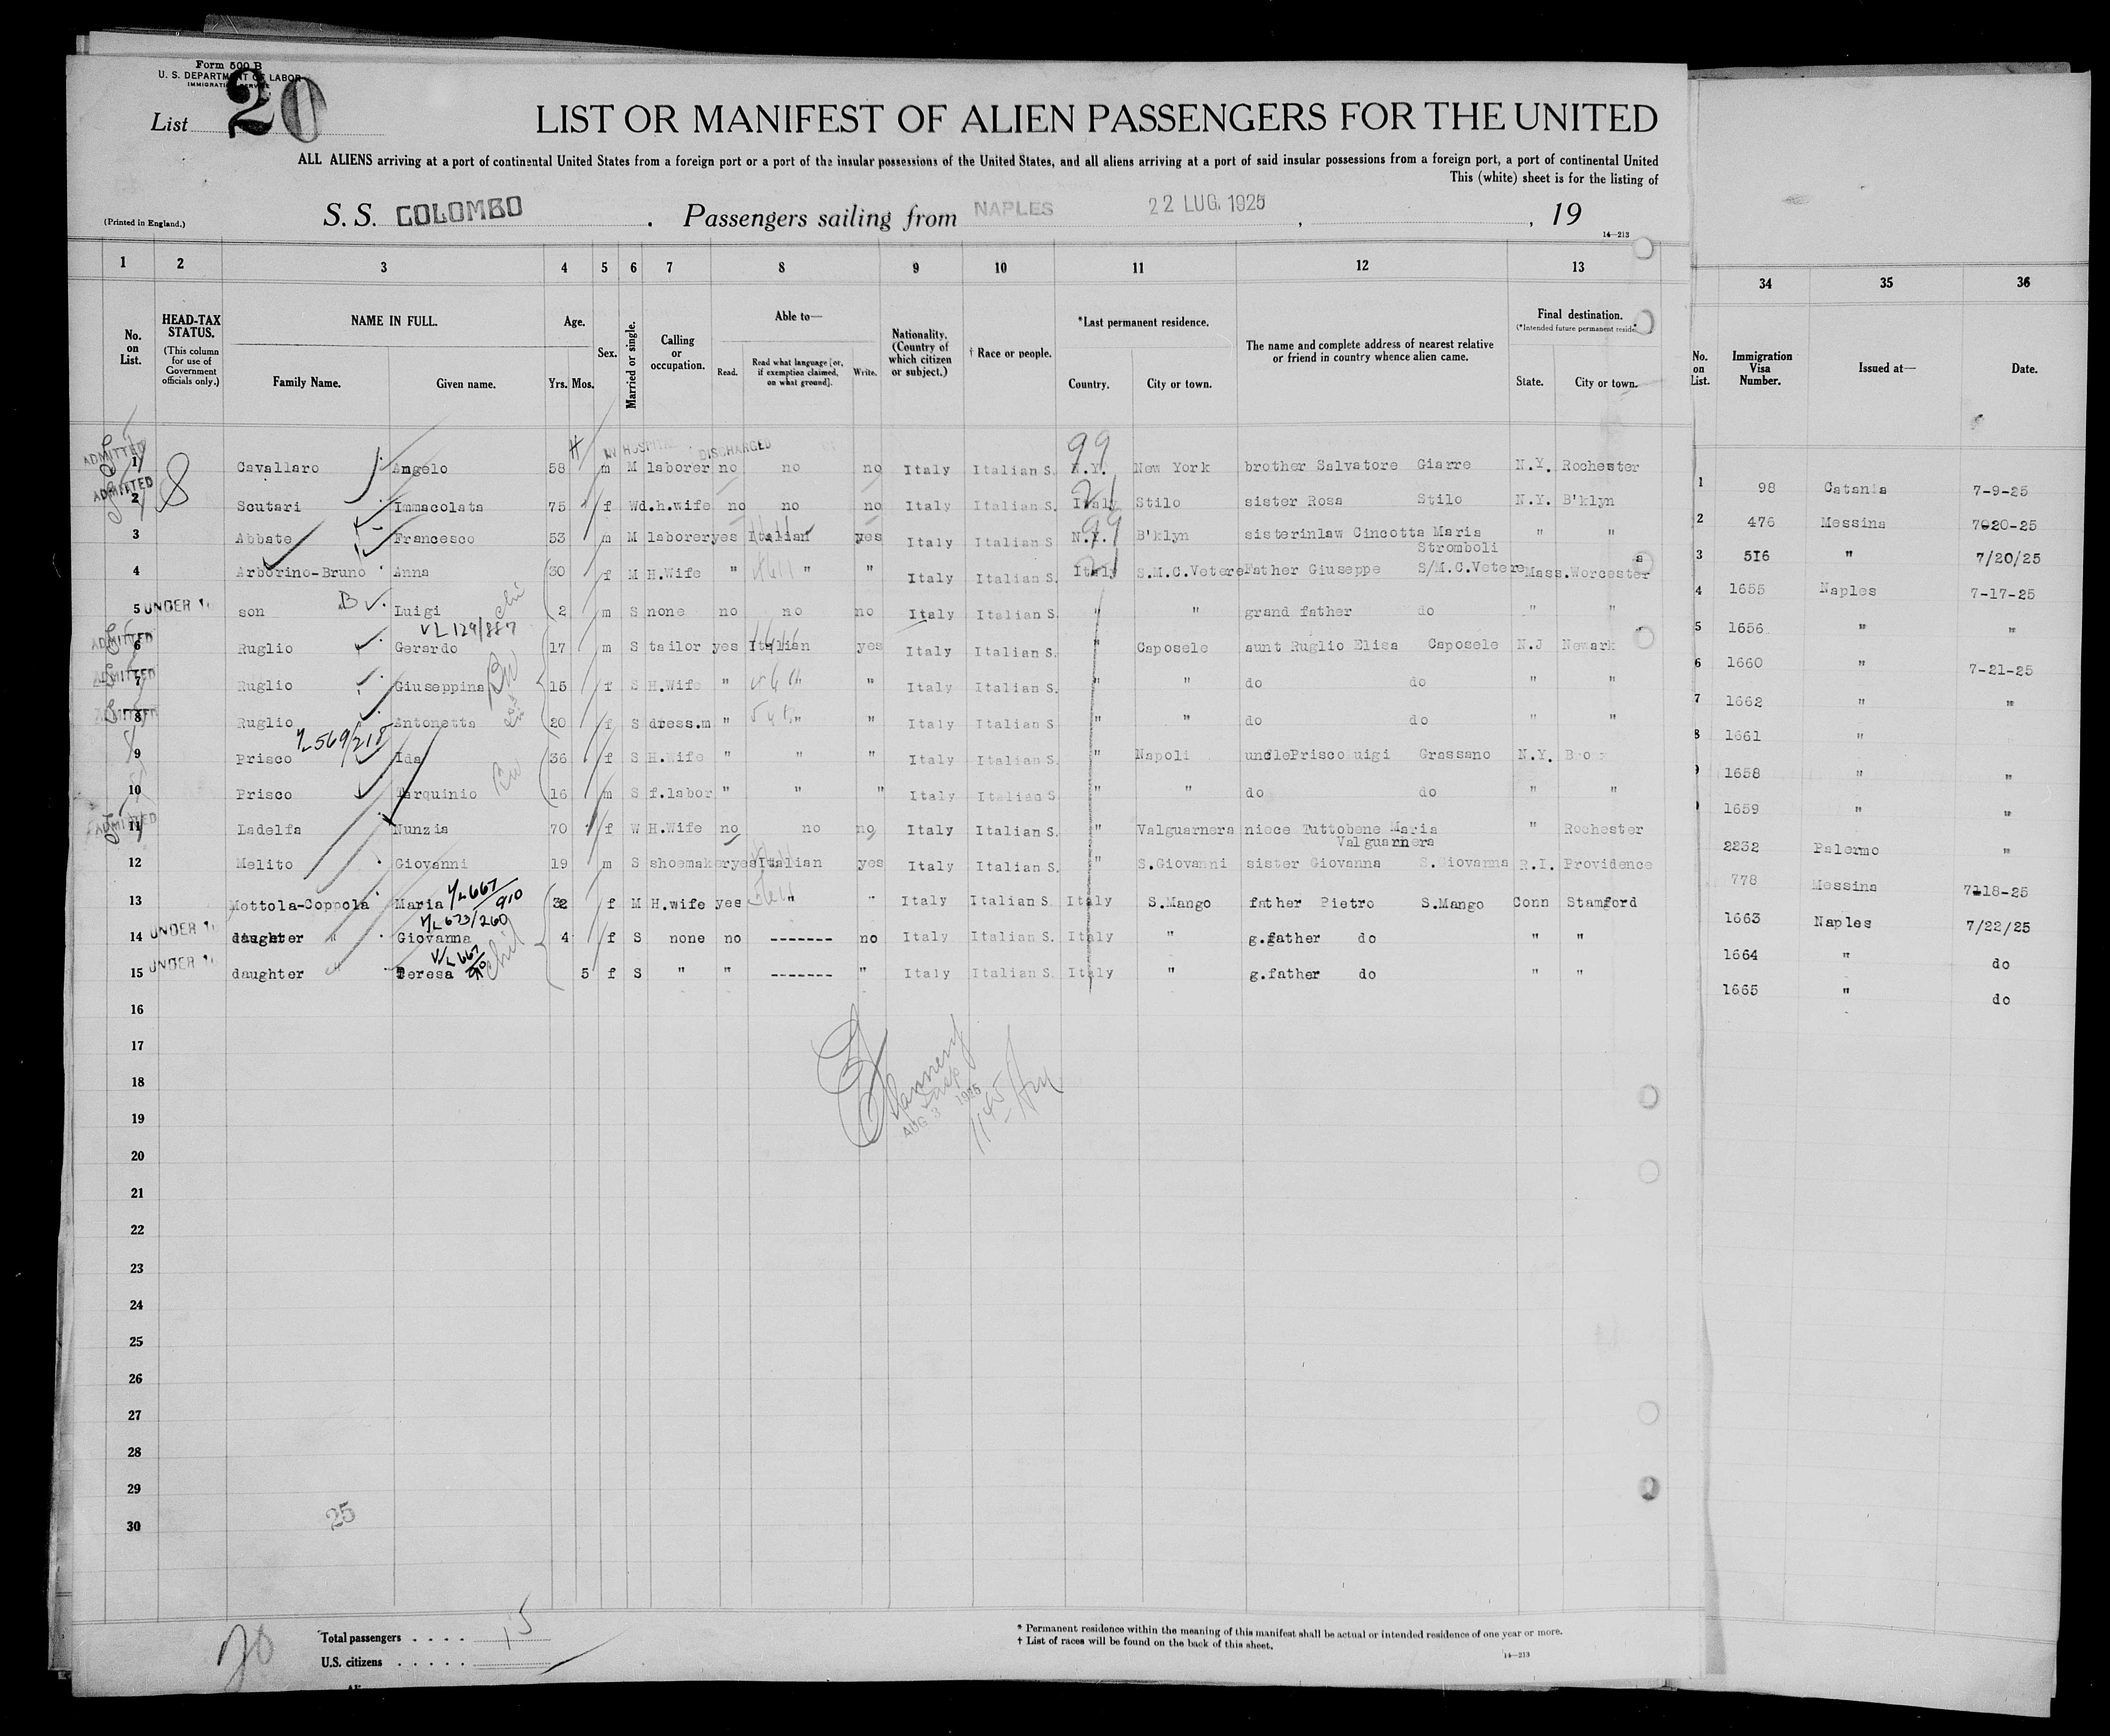 Form 500 B
U. S. DEPARTMENT OF LABOR
IMMIGRATION SERVICE
List 20
LIST OR MANIFEST OF ALIEN PASSENGERS FOR THE UNITED
ALL ALIENS arriving at a port of continental United States from a foreign port or a port of the insular possessions of the United States, and all aliens arriving at a port of said insular possessions from a foreign port, a port of continental United
This (white) sheet is for the listing of
(Printed in England.)
S. S. COLOMBO . Passengers sailing from NAPLES 22 LUG. 1925 , , 19
14—213
1 2 3 4 5 6 7 8 9 10 11 12 13 34 35 36
No. on List.
HEAD-TAX STATUS.
(This column for use of Government officials only.)
NAME IN FULL.
Family Name. Given name.
Age.
Yrs. Mos.
Sex.
Married or single.
Calling or occupation.
Able to—
Read.
Read what language [or, if exemption claimed, on what ground].
Write.
Nationality. (Country of which citizen or subject.)
† Race or people.
*Last permanent residence.
Country. City or town.
The name and complete address of nearest relative or friend in country whence alien came.
Final destination.
(*Intended future permanent reside
State. City or town.
No. on List.
Immigration Visa Number.
Issued at—
Date.
IN HOSPITAL DISCHARGED
99
ADMITTED 1 Cavallaro Angelo 58 m M laborer no no no Italy Italian S. N.Y. New York brother Salvatore Giarre N.Y. Rochester
1 98 Catania 7-9-25
ADMITTED 2 8 Scutari Immacolata 75 f Wd.h.wife no no no Italy Italian S. Italy 21 Stilo sister Rosa Stilo N.Y. B'klyn
2 476 Messina 7020-25
3 Abbate Francesco 53 m M laborer yes Italian yes Italy Italian S N.Y. 99 B'klyn sisterinlaw Cincotta Maria Stromboli " "
3 516 " 7/20/25
4 Arborino-Bruno Anna 30 f M H.Wife " " " Italy Italian S. Italy 21 S.M.C.Vetere Father Giuseppe S/M.C.Vetere Mass. Worcester
4 1655 Naples 7-17-25
5 UNDER 16 son B Luigi 2 m S none no no no Italy Italian S. " " grand father do " "
5 1656 " "
VL 129/887
ADMITTED 6 Ruglio Gerardo 17 m S tailor yes Italian yes Italy Italian S. " Caposele aunt Ruglio Elisa Caposele N.J Newark
6 1660 " 7-21-25
ADMITTED 7 Ruglio Giuseppina 15 f S H.Wife " " Italy Italian S. " " do do " "
7 1662 " "
ADMITTED 8 Ruglio Antonetta 20 f S dress.m " " " Italy Italian S. " " do do " "
8 1661 "
V/L 569/218
9 Prisco Ida 36 f S H.Wife " " " Italy Italian S. " Napoli unclePrisco uigi Grassano N.Y.
1658 " "
10 Prisco Tarquinio 16 m S f.labor " " " Italy Italian S " " do do " "
1659 " "
ADMITTED 11 Ladelfa Nunzia 70 f W H.Wife no no no Italy Italian S. " Valguarnera niece Tuttobene Maria Valguarnera " Rochester
2232 Palermo "
12 Melito Giovanni 19 m S shoemaker yes Italian yes Italy Italian S. " S.Giovanni sister Giovanna S.Giovanna R.I. Providence
778 Messina 7118-25
13 Mottola-Coppola Maria V/L 667/910 32 f M H.wife yes " " Italy Italian S. Italy S.Mango father Pietro S.Mango Conn Stamford
1663 Naples 7/22/25
V/L 673/260
14 UNDER 16 daughter " Giovanna 4 f S none no ------- no Italy Italian S. Italy " g.father do " "
1664 " do
V/L 667/910
15 UNDER 16 daughter " Teresa 5 f S " " ------- " Italy Italian S. Italy " g.father do " "
1665 " do
16
17
18
AUG 3 1925
19
20
21
22
23
24
25
26
27
28
29
25
30
20
Total passengers . . . . 15
U.S. citizens . . . . .
* Permanent residence within the meaning of this manifest shall be actual or intended residence of one year or more.
† List of races will be found on the back of this sheet.
14—213